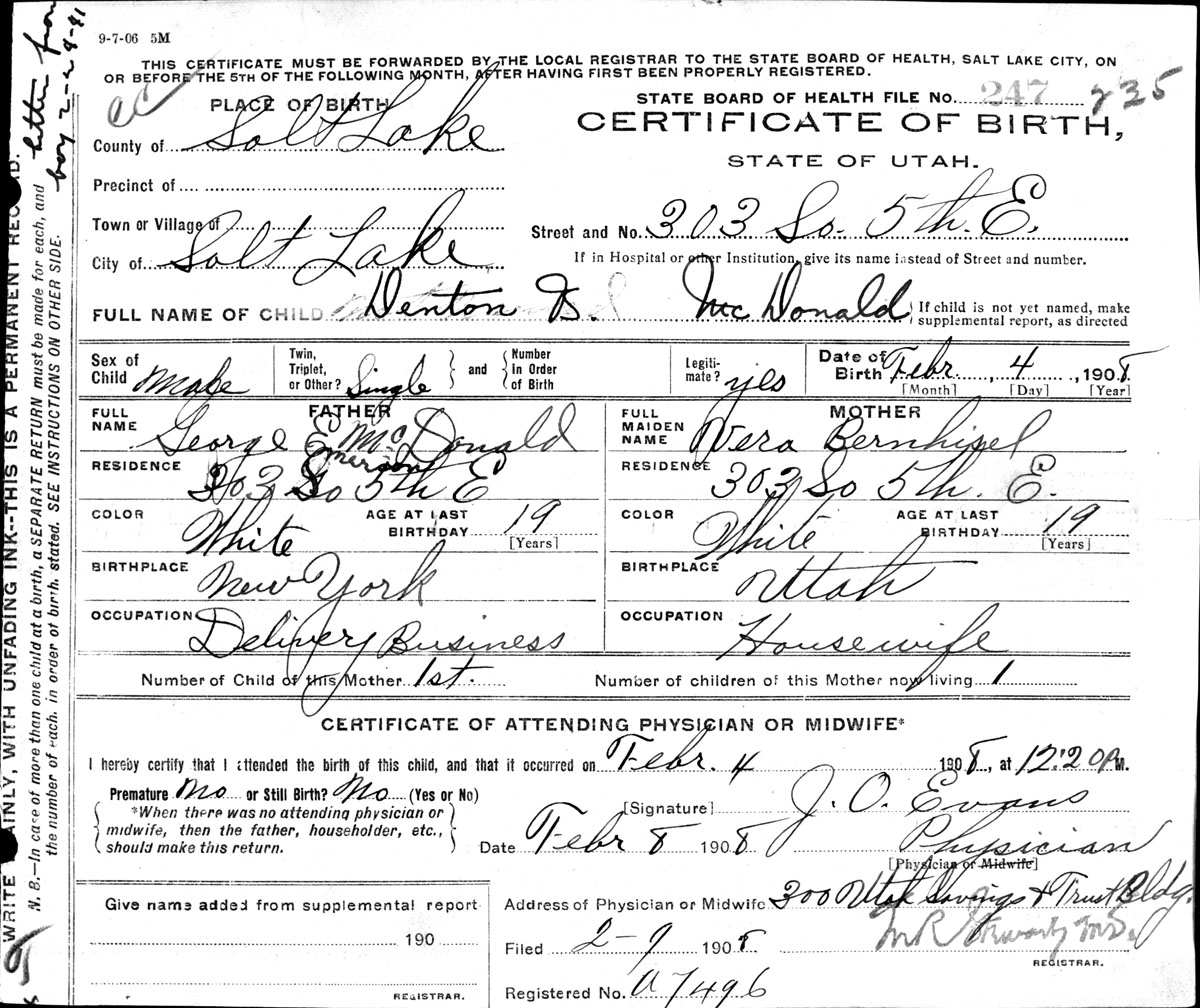 9-7-06 5M
letter from
boy 2-24-41
THIS CERTIFICATE MUST BE FORWARDED BY THE LOCAL REGISTRAR TO THE STATE BOARD OF HEALTH, SALT LAKE CITY, ON
OR BEFORE THE 5TH OF THE FOLLOWING MONTH, AFTER HAVING FIRST BEEN PROPERLY REGISTERED.
PLACE OF BIRTH
STATE BOARD OF HEALTH FILE No. 247 235
CERTIFICATE OF BIRTH,
STATE OF UTAH.
County of Salt Lake
Precinct of
Town or Village of
Street and No. 303 So. 5th. E.
City of Salt Lake
If in Hospital or other Institution, give its name instead of Street and number.
FULL NAME OF CHILD Denton B. McDonald If child is not yet named, make
supplemental report, as directed
Sex of Child Male Twin, Triplet, or Other? Single and Number in Order of Birth Legiti-mate? yes Date of Birth Febr. 4, 1908.
[Month] [Day] [Year]
FATHER MOTHER
FULL NAME George E. McDonald FULL MAIDEN NAME Vera Bernhisel
Emerson
RESIDENCE 303 So 5th E RESIDENCE 303 So 5th. E.
COLOR White AGE AT LAST BIRTHDAY 19 [Years] COLOR White AGE AT LAST BIRTHDAY 19 [Years]
BIRTHPLACE New York BIRTHPLACE Utah
OCCUPATION Delivery Business OCCUPATION Housewife
Number of Child of this Mother 1st. Number of children of this Mother now living 1
CERTIFICATE OF ATTENDING PHYSICIAN OR MIDWIFE*
I hereby certify that I attended the birth of this child, and that it occurred on Febr. 4 1908, at 12:20 P.M.
Premature No or Still Birth? No (Yes or No)
*When there was no attending physician or
midwife, then the father, householder, etc.,
should make this return.
[Signature] J. O. Evans
Date Febr 8 1908 Physician
[Physician or Midwife]
Give name added from supplemental report
190
REGISTRAR.
Address of Physician or Midwife 300 Utah Savings & Trust Bldg.
Filed 2-9 1908
REGISTRAR.
Registered No. a7496
WRITE PLAINLY, WITH UNFADING INK--THIS IS A PERMANENT RECORD.
N. B.—In case of more than one child at a birth, a SEPARATE RETURN must be made for each, and
the number of each, in order of birth, stated. SEE INSTRUCTIONS ON OTHER SIDE.